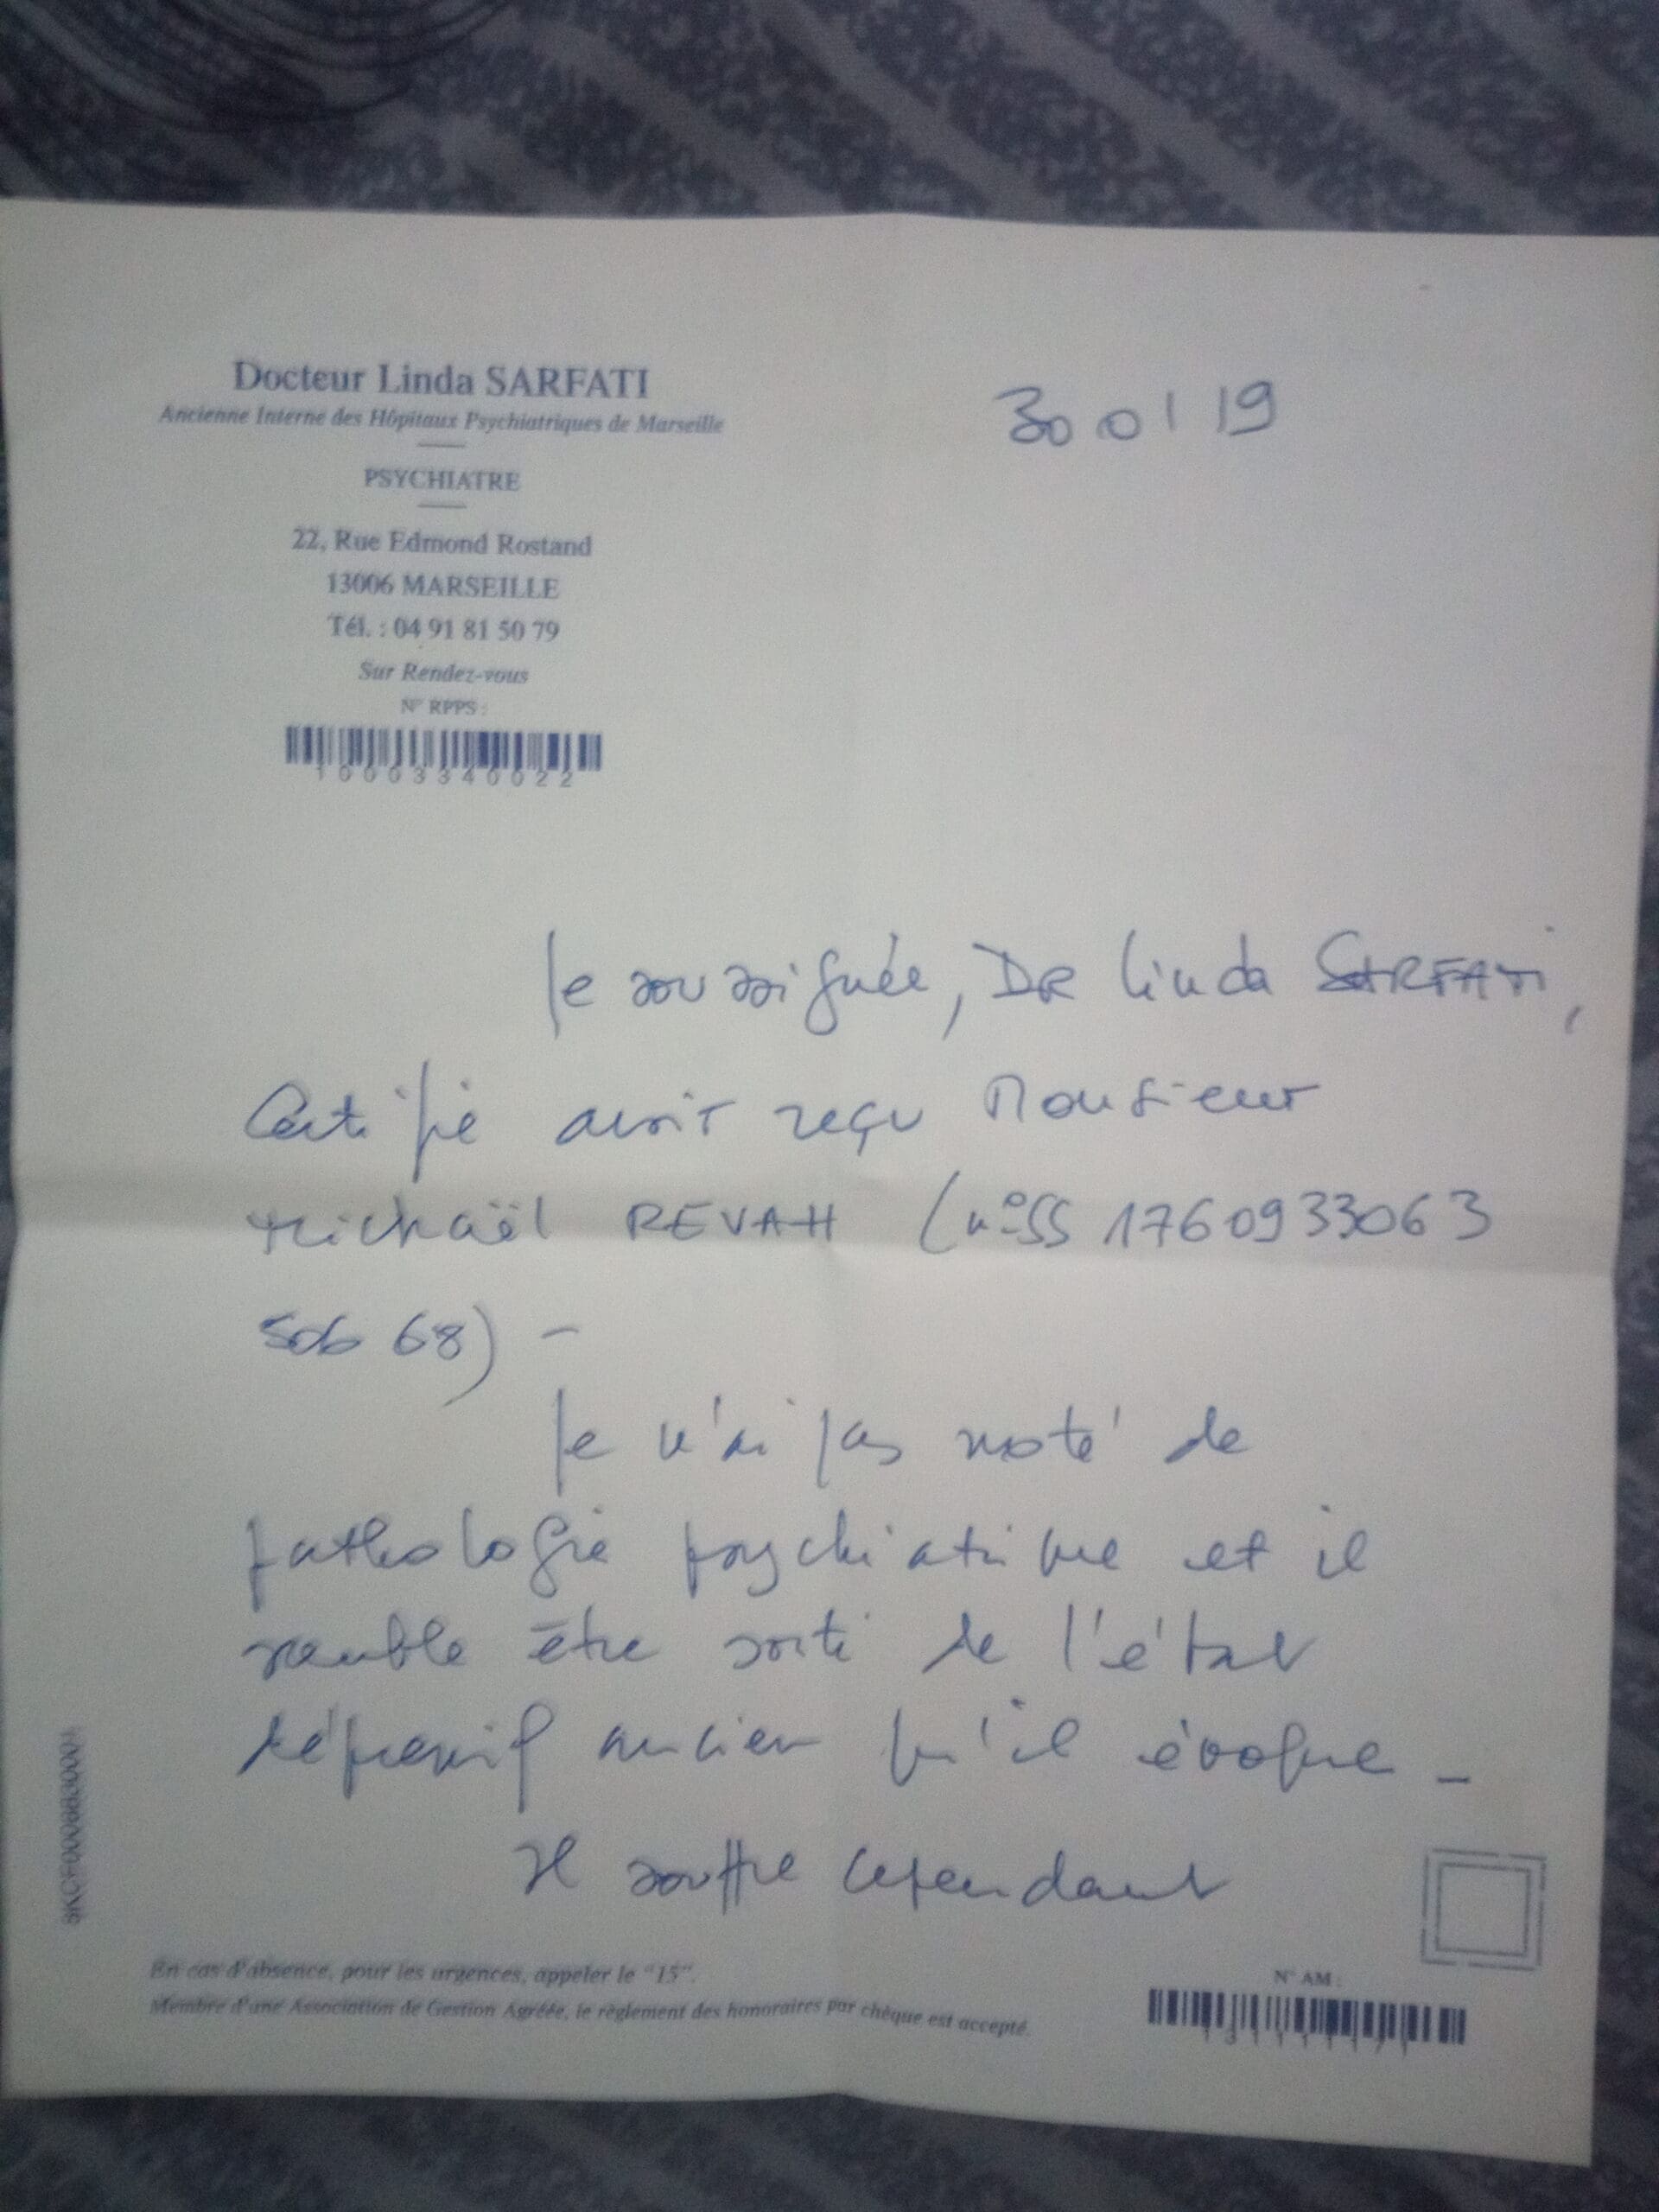 Docteur Linda SARFATI
Ancienne Interne des Hôpitaux Psychiatriques de Marseille
PSYCHIATRE
22, Rue Edmond Rostand
13006 MARSEILLE
Tél. : 04 91 81 50 79
Sur Rendez-vous
N° RPPS :
10003340022
30 01 19
Je soussignée, DR Linda SARFATI,
Certifie avoir reçu Monsieur
Michaël REVAH (n° SS 1760933063
506 68) -
Je n'ai pas noté de
pathologie psychiatrique et il
semble être sorti de l'état
dépressif ancien qu'il évoque -
Il souffre cependant
En cas d'absence, pour les urgences, appeler le "15".
Membre d'une Association de Gestion Agréée, le règlement des honoraires par chèque est accepté.
N° AM :